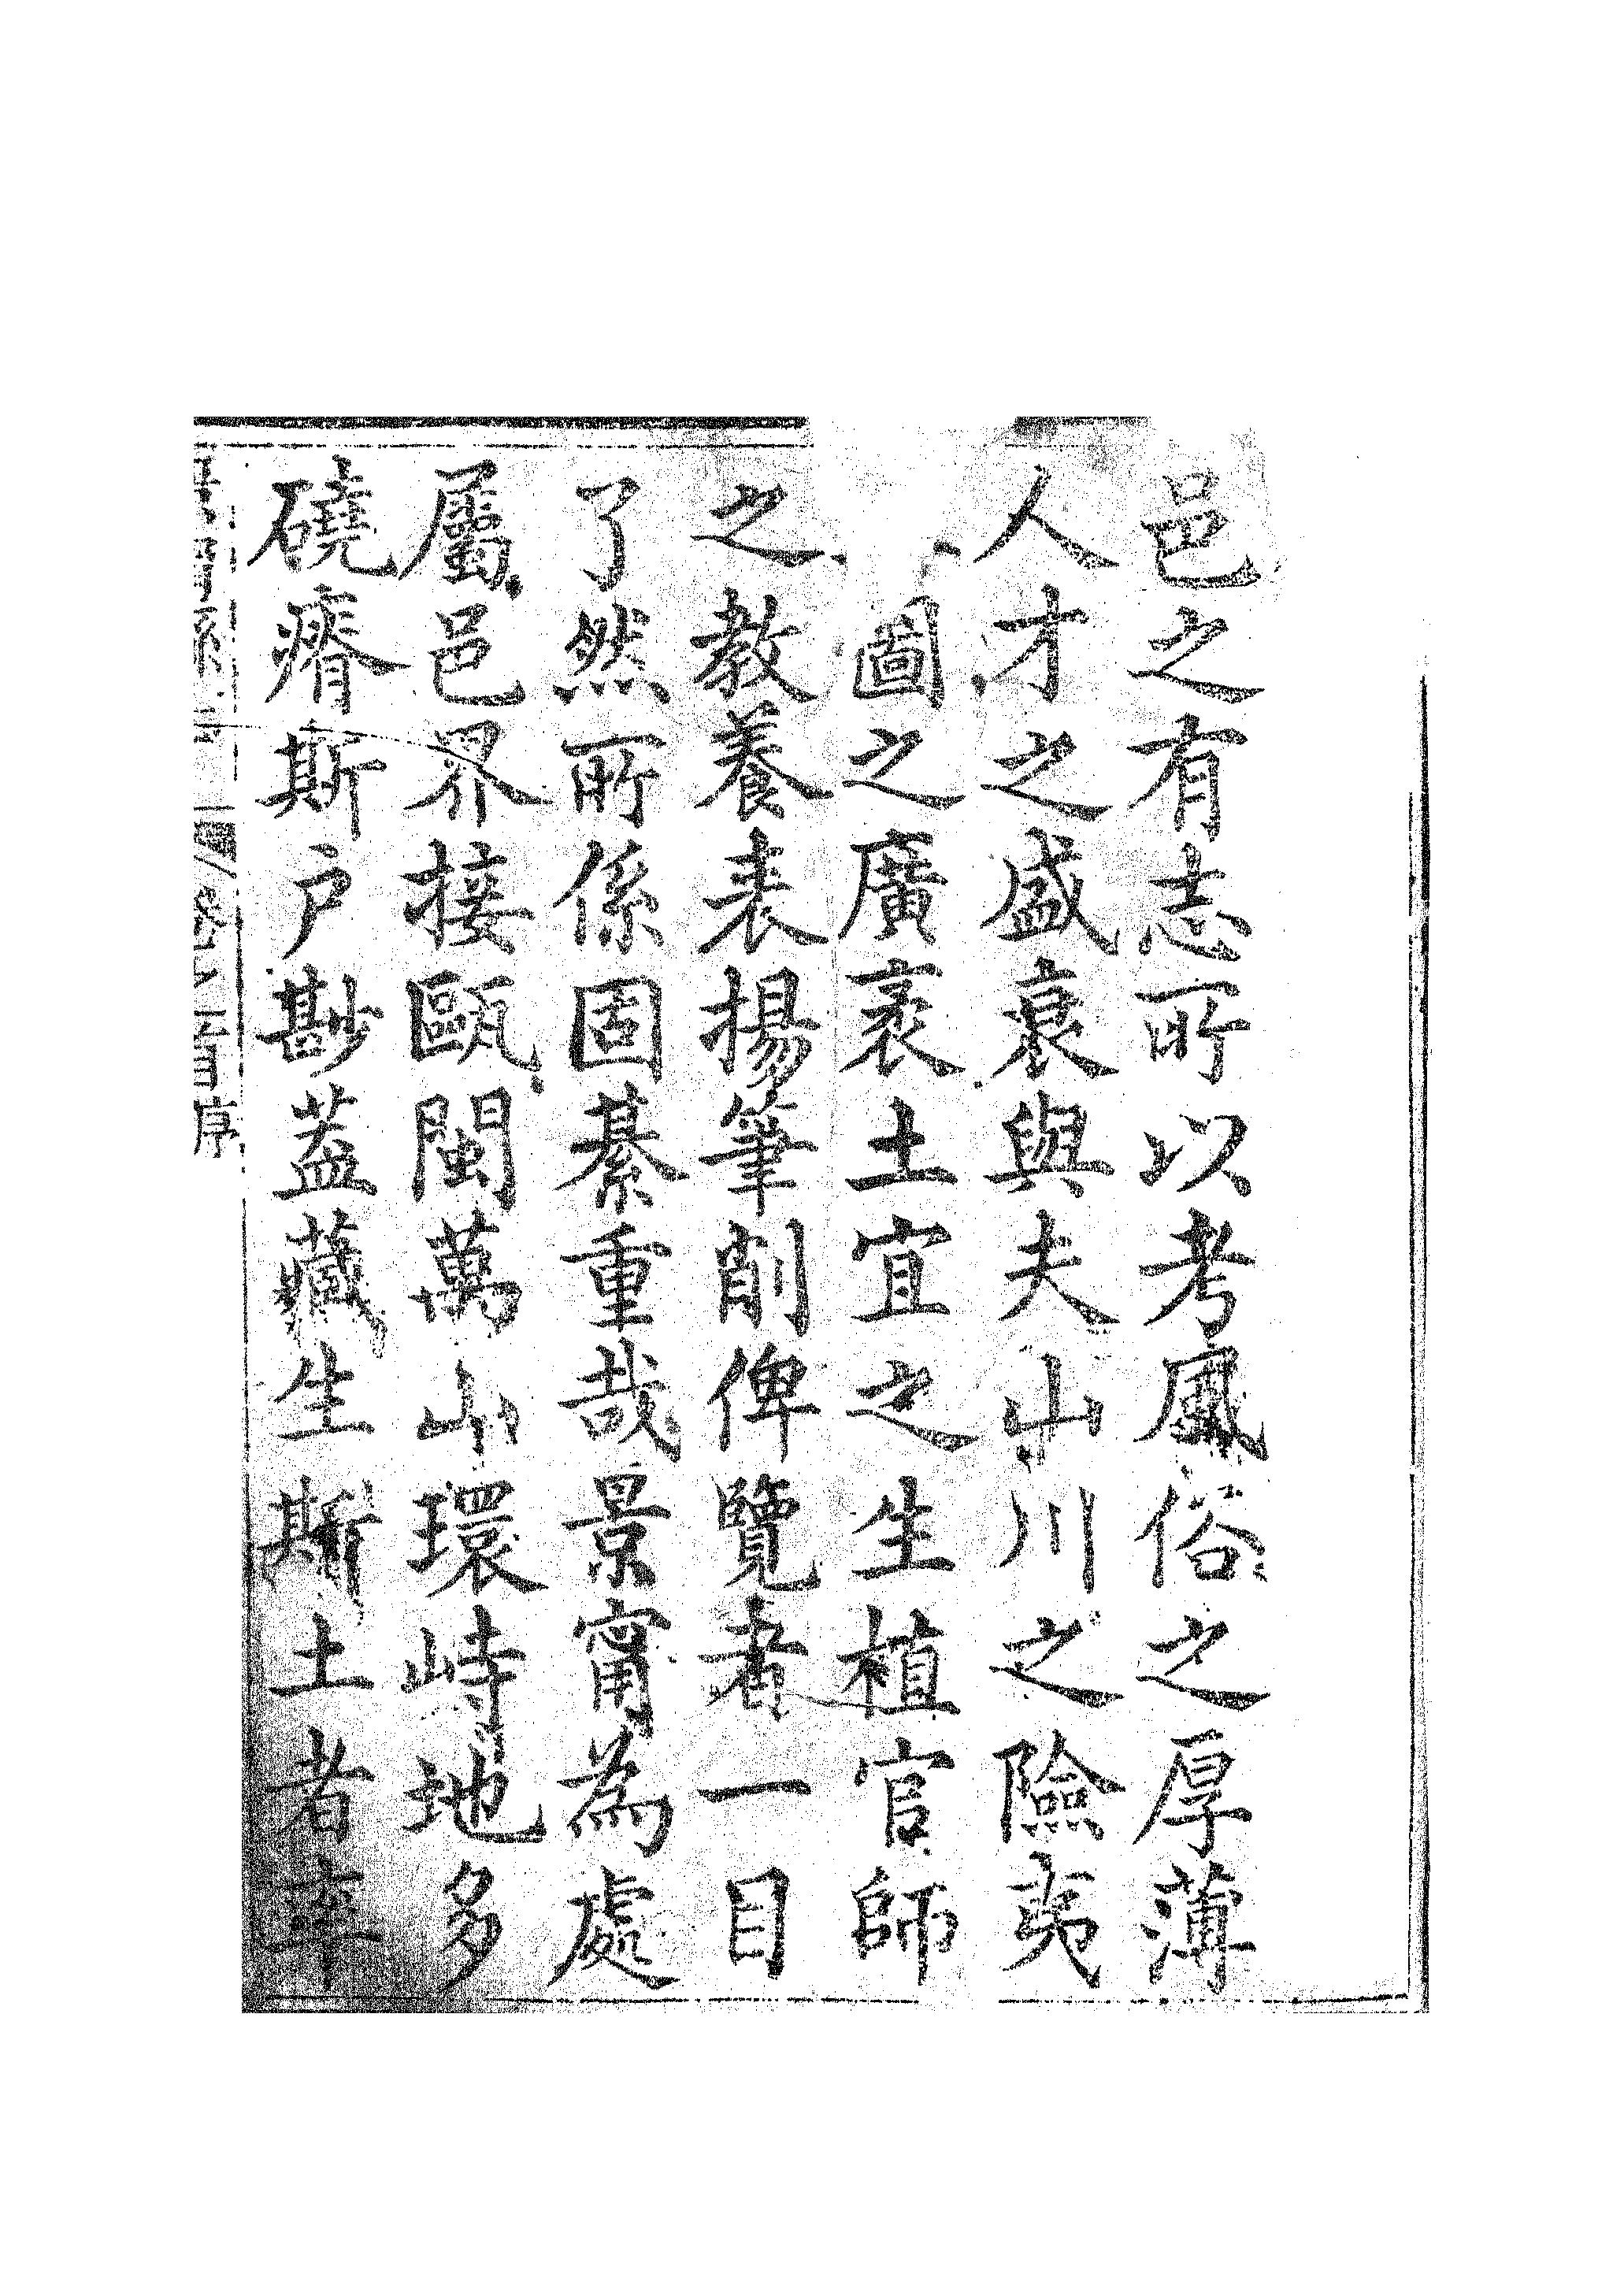 邑之有志所以考風俗之厚薄
人才之盛衰與夫山川之險夷
圖之廣袤土宜之生植官師
之教養表揚筆削俾覽者一目
了然所係固綦重哉景甯為處
屬邑界接甌閩萬山環峙地多
磽瘠斯戶尠葢藏生斯土者率
序